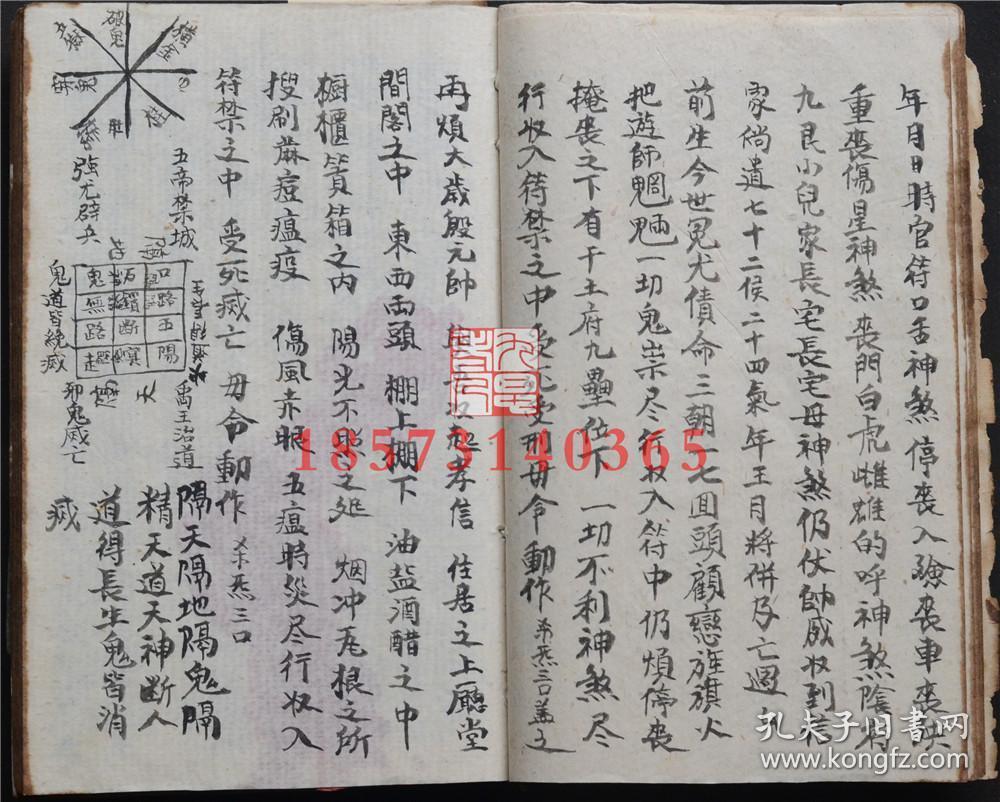 年月日時官符口舌神煞停喪入殮喪車喪
重喪傷星神煞喪門白虎雌雄的呼神煞陰
九良小兒家長宅長宅母神煞仍伏帥威收到
家倘遺七十二侯二十四氣年王月將併及亡過
前生今世冤尤債命三朝一七回頭顧戀旌旗火
把遊師魍魎一切鬼祟尽行收入符中仍煩停喪
掩喪之下有干土府九壘位下一切不利神煞尽
行收入符禁之中受死受刑毋令動作 三口蓋之
再煩大歲殷元帥 孝信 住居之上廳堂
間閣之中 東西両頭 棚上棚下 油盐酒醋之中
橱櫃箱之内 陽光不照之処 烟冲尾根之所
搜刷蔴痘瘟疫 傷風赤眼 五瘟時災尽行收入
符禁之中 受死滅亡 毋令動作 三口
隔天隔地隔鬼隔
精天道天神断人
道得長生鬼皆消
滅
破鬼
五帝禁城
強尤辟兵
鬼道皆統滅
禹王治道
邪鬼滅亡
鬼
口
無
路
路
断
王
陽
18573140365
孔夫子旧书网
www.kongfz.com